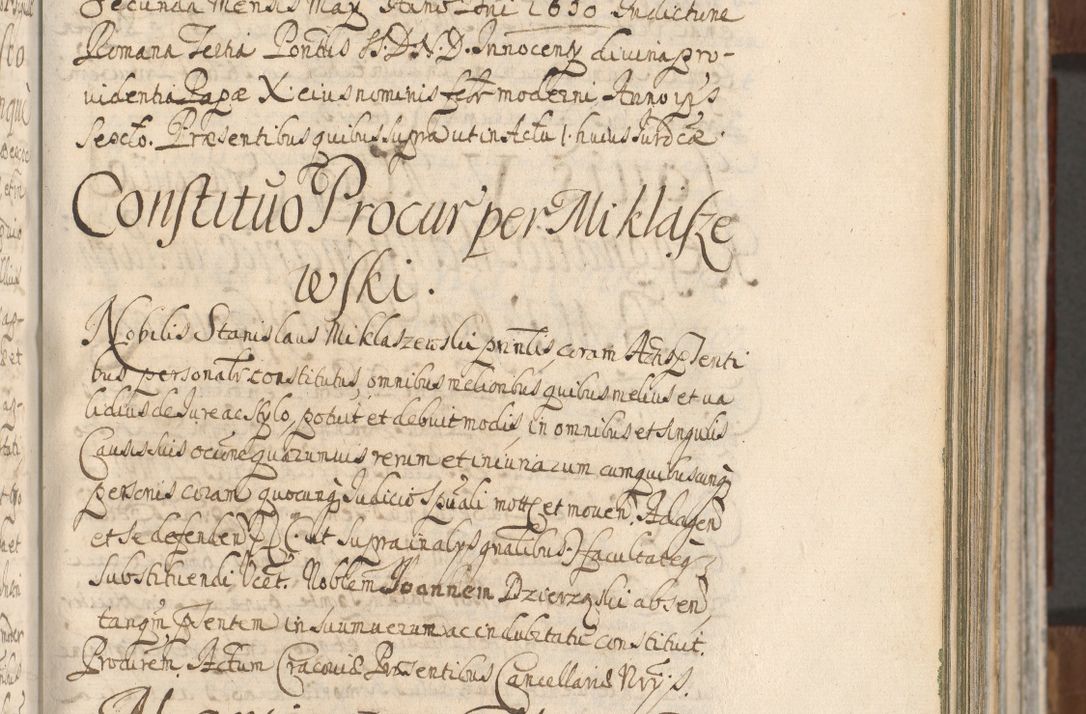 Secunda Mensis May Anno Dni 1650 Indictione
Romana Tertia Pontus SS. D. N. D. Innocenty divina pro-
videntia Papæ X. eius nominis moderni, Anno ips
Sexto. Præsentibus quibus supra ut in Actu 1. huius Jurdcæ.
Constituo Procur per Miklasze
wski.
Nobilis Stanislaus Miklaszewski prinlis, coram Actis pSenti
bus personalr constitutus, omnibus melioribus quibus melius et va
lidius de Jure ac stylo, potuit et debuit modis, in omnibus et singulis
Causis suis quarumvis rerum et iniuriarum cum quibuscunq
personis coram quocunq Judicio Spuali mott et moven. Ad agen
et se defenden (ut supra in alys gnalibus) facultateq
substituendi Ucet. Noblem Joannem Dzierzski absen
tanqm pSentem in suum verum ac indubitatu constituit.
Procurem. Actum Cracoviæ Præsentibus Cancellariæ Nry S.